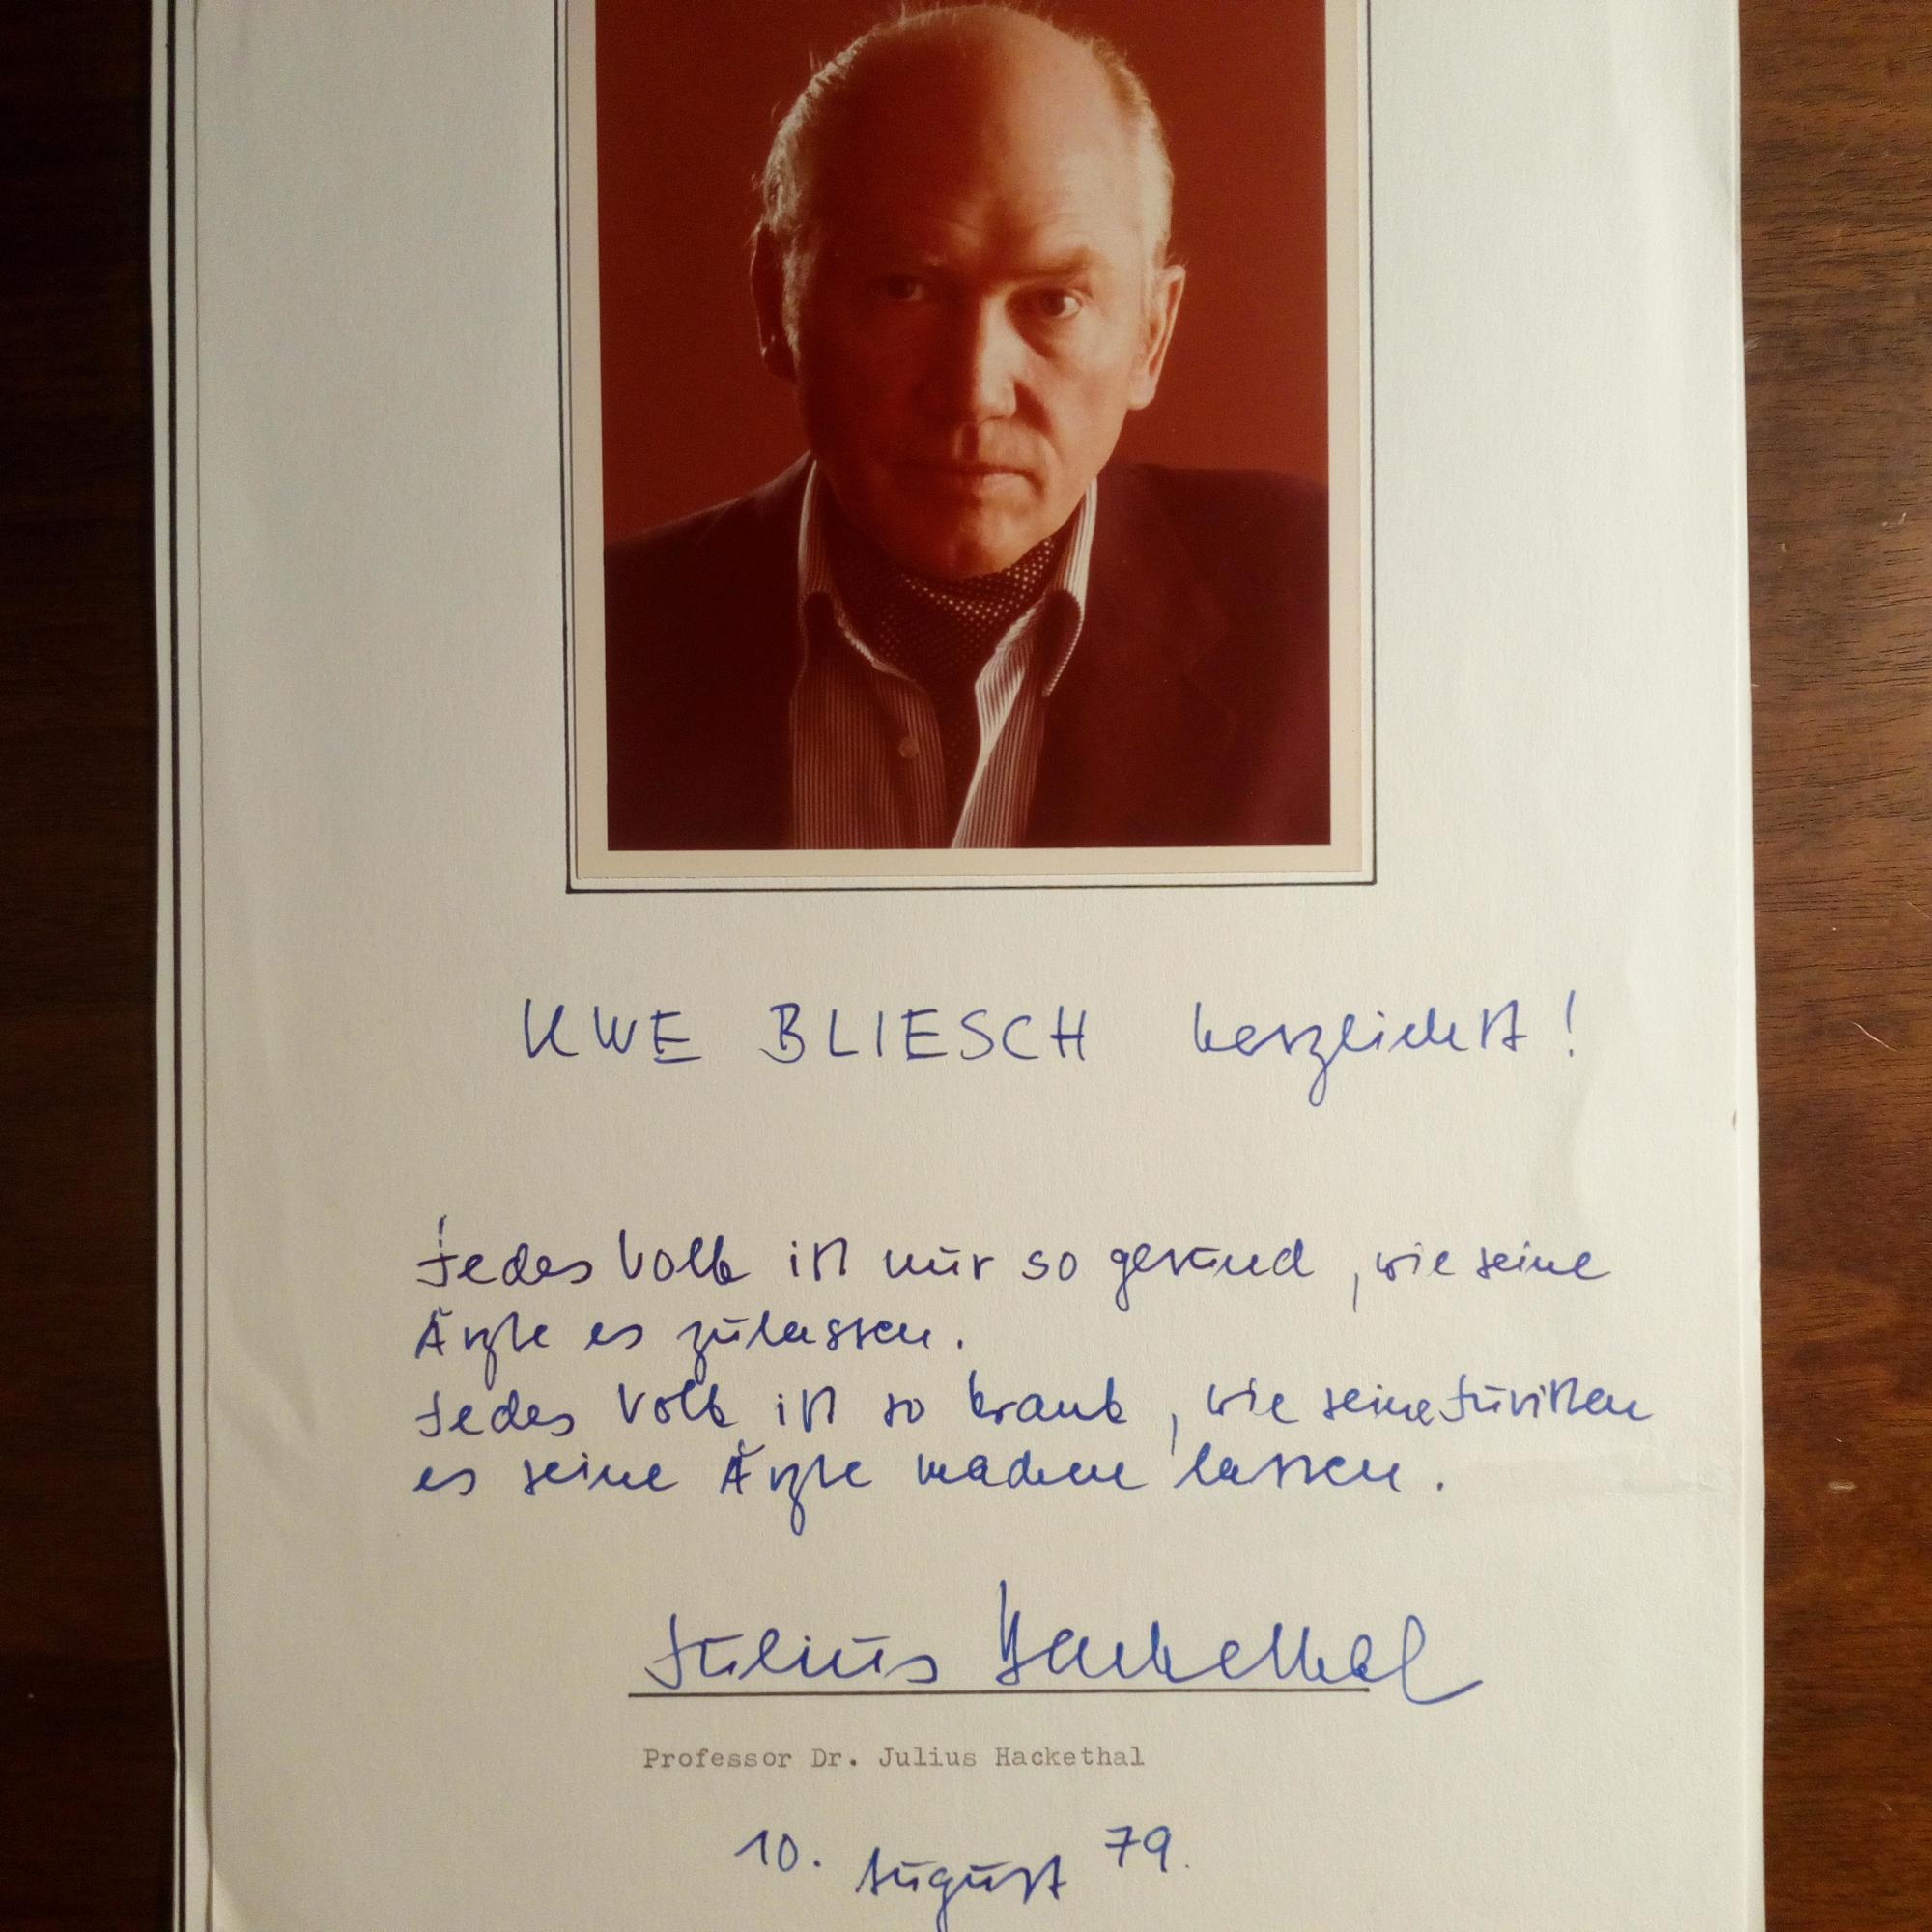 UWE BLIESCH herzlichst!
Jedes Volk ist nur so gesund, wie seine
Ärzte es zulassen.
Jedes Volk ist so krank, wie seine Juristen
es seine Ärzte machen lassen.
Julius Hackethal
Professor Dr. Julius Hackethal
10. August 79.